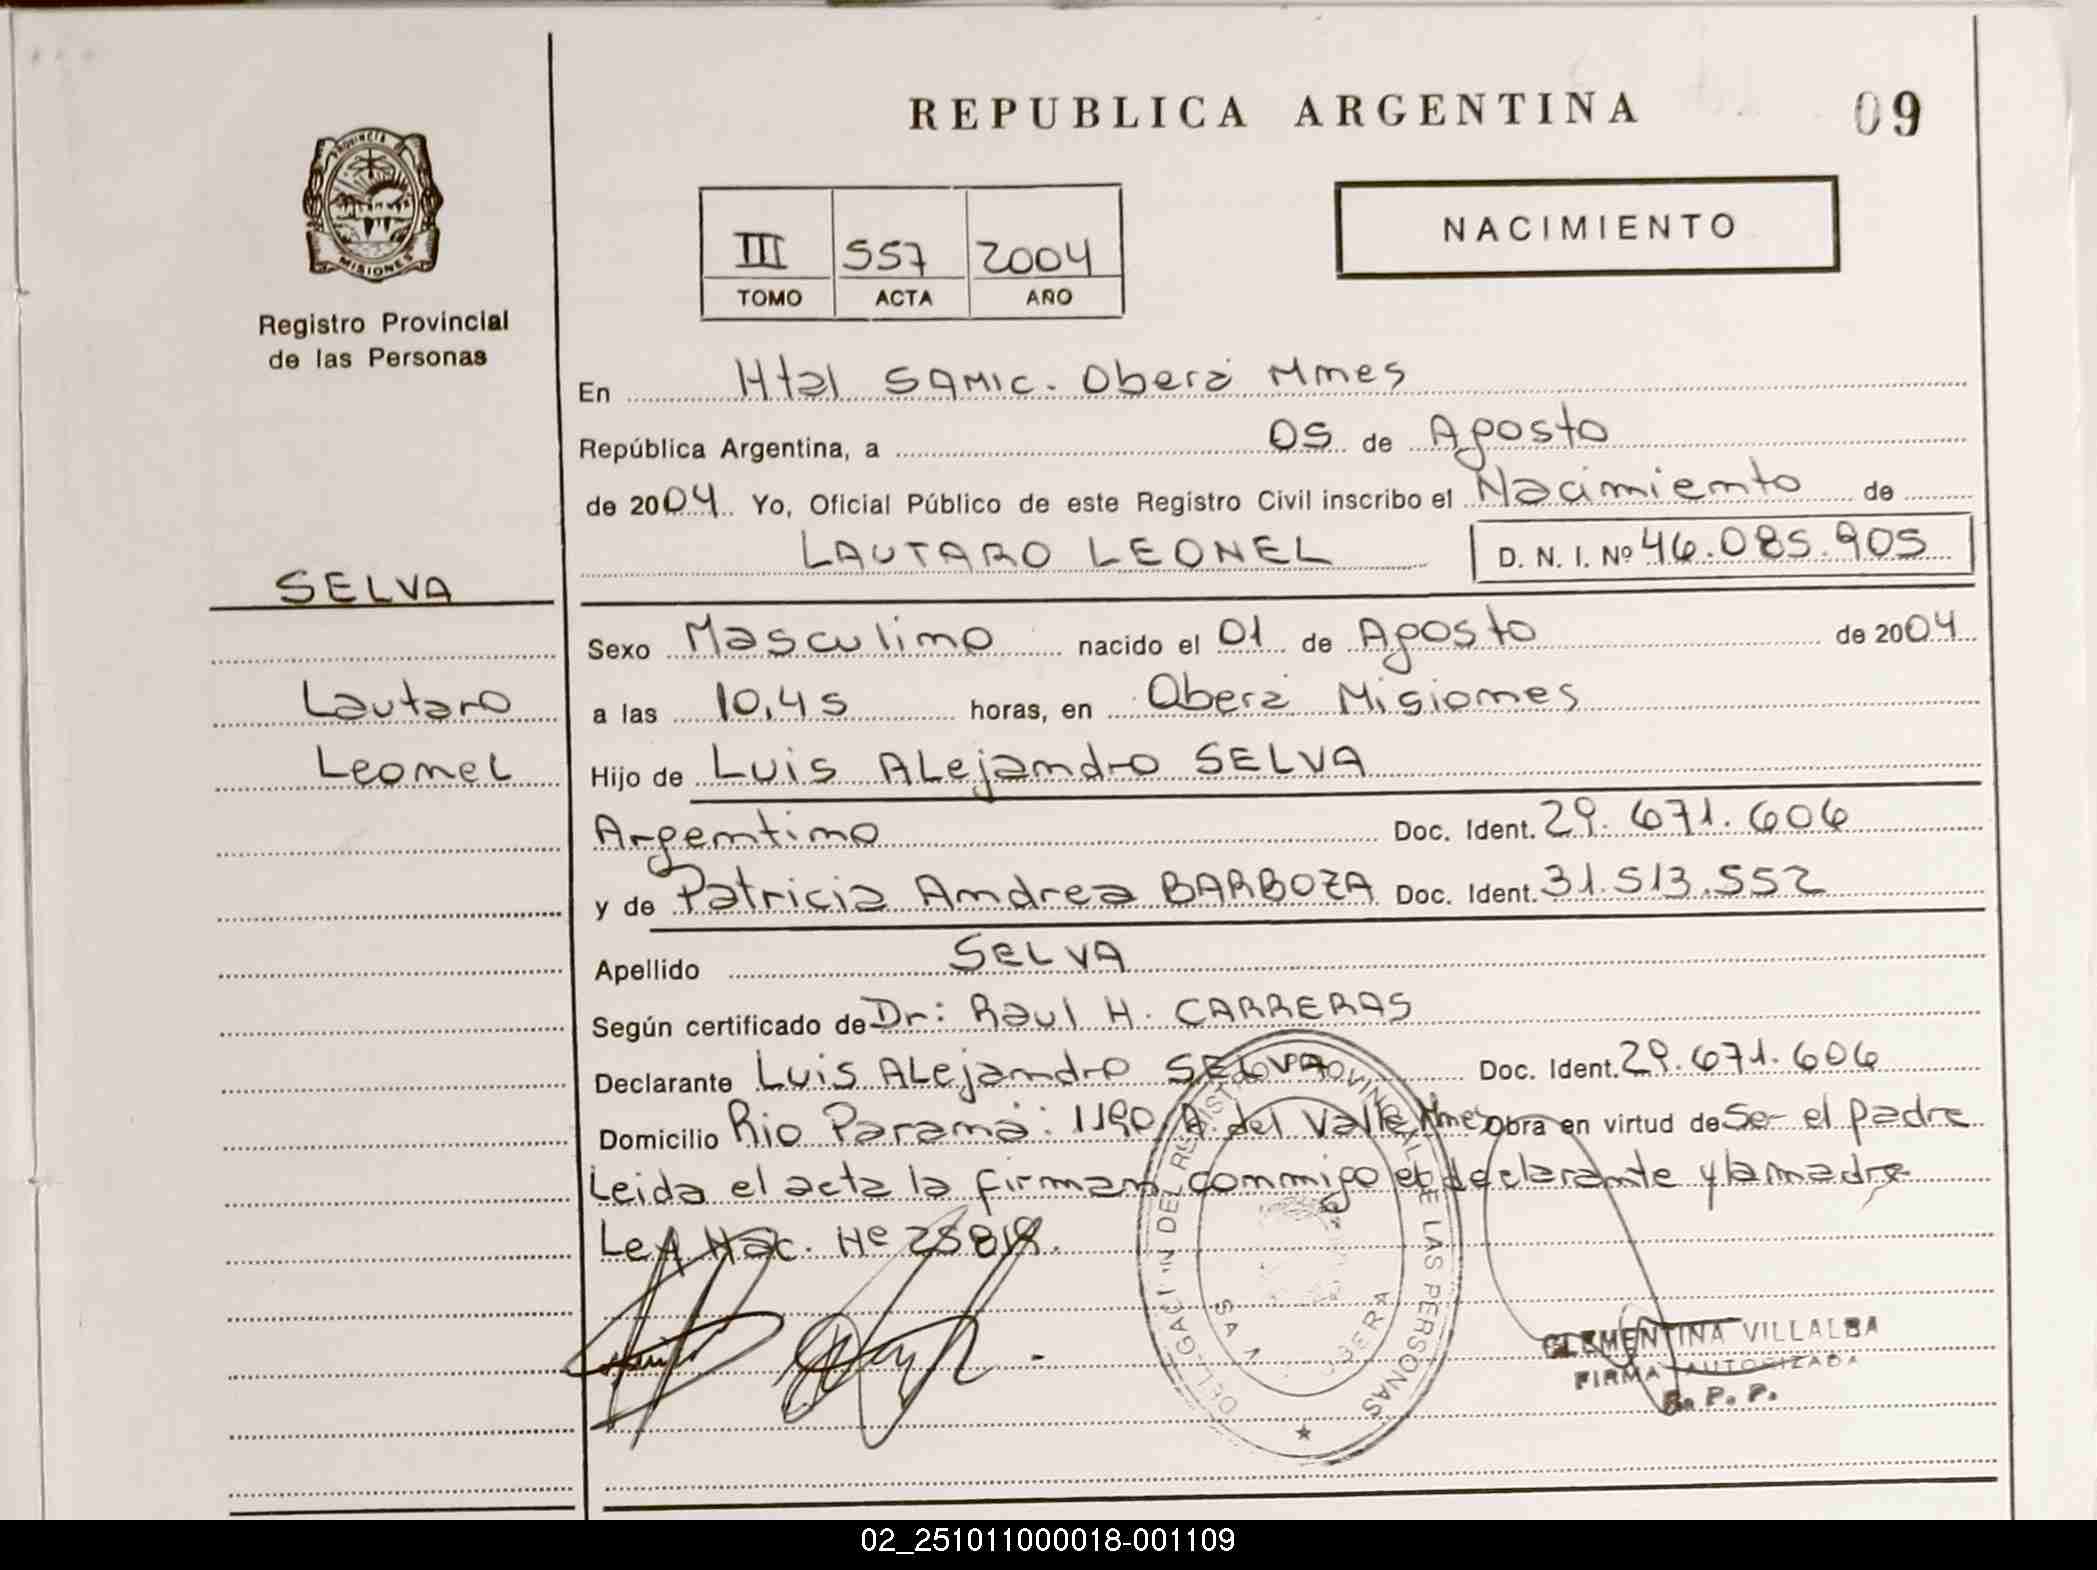 REPUBLICA ARGENTINA
09
PROVINCIA
MISIONES
Registro Provincial
de las Personas
III 557 2004
TOMO ACTA AÑO
NACIMIENTO
En Htal SAMIC. Oberá Mnes
República Argentina, a 05 de Agosto
de 2004 Yo, Oficial Público de este Registro Civil inscribo el Nacimiento de
LAUTARO LEONEL D. N. I. Nº 46.085.905
SELVA
Lautaro
Leonel
Sexo Masculino nacido el 01 de Agosto de 2004
a las 10,45 horas, en Oberá Misiones
Hijo de Luis Alejandro SELVA
Argentino Doc. Ident. 29.671.606
y de Patricia Andrea BARBOZA Doc. Ident. 31.513.552
Apellido SELVA
Según certificado de Dr: Raul H. CARRERAS
Declarante Luis Alejandro SELVA Doc. Ident. 29.671.606
Domicilio Rio Paraná: 1190 A. del Valle Mnes Obra en virtud de Ser el padre
Leida el acta la firman conmigo el declarante y la madre
Nac. Nº
DELEGACION DEL REGISTRO PROVINCIAL DE LAS PERSONAS
CLEMENTINA VILLALBA
FIRMA AUTORIZADA
R. P. P.
02_251011000018-001109